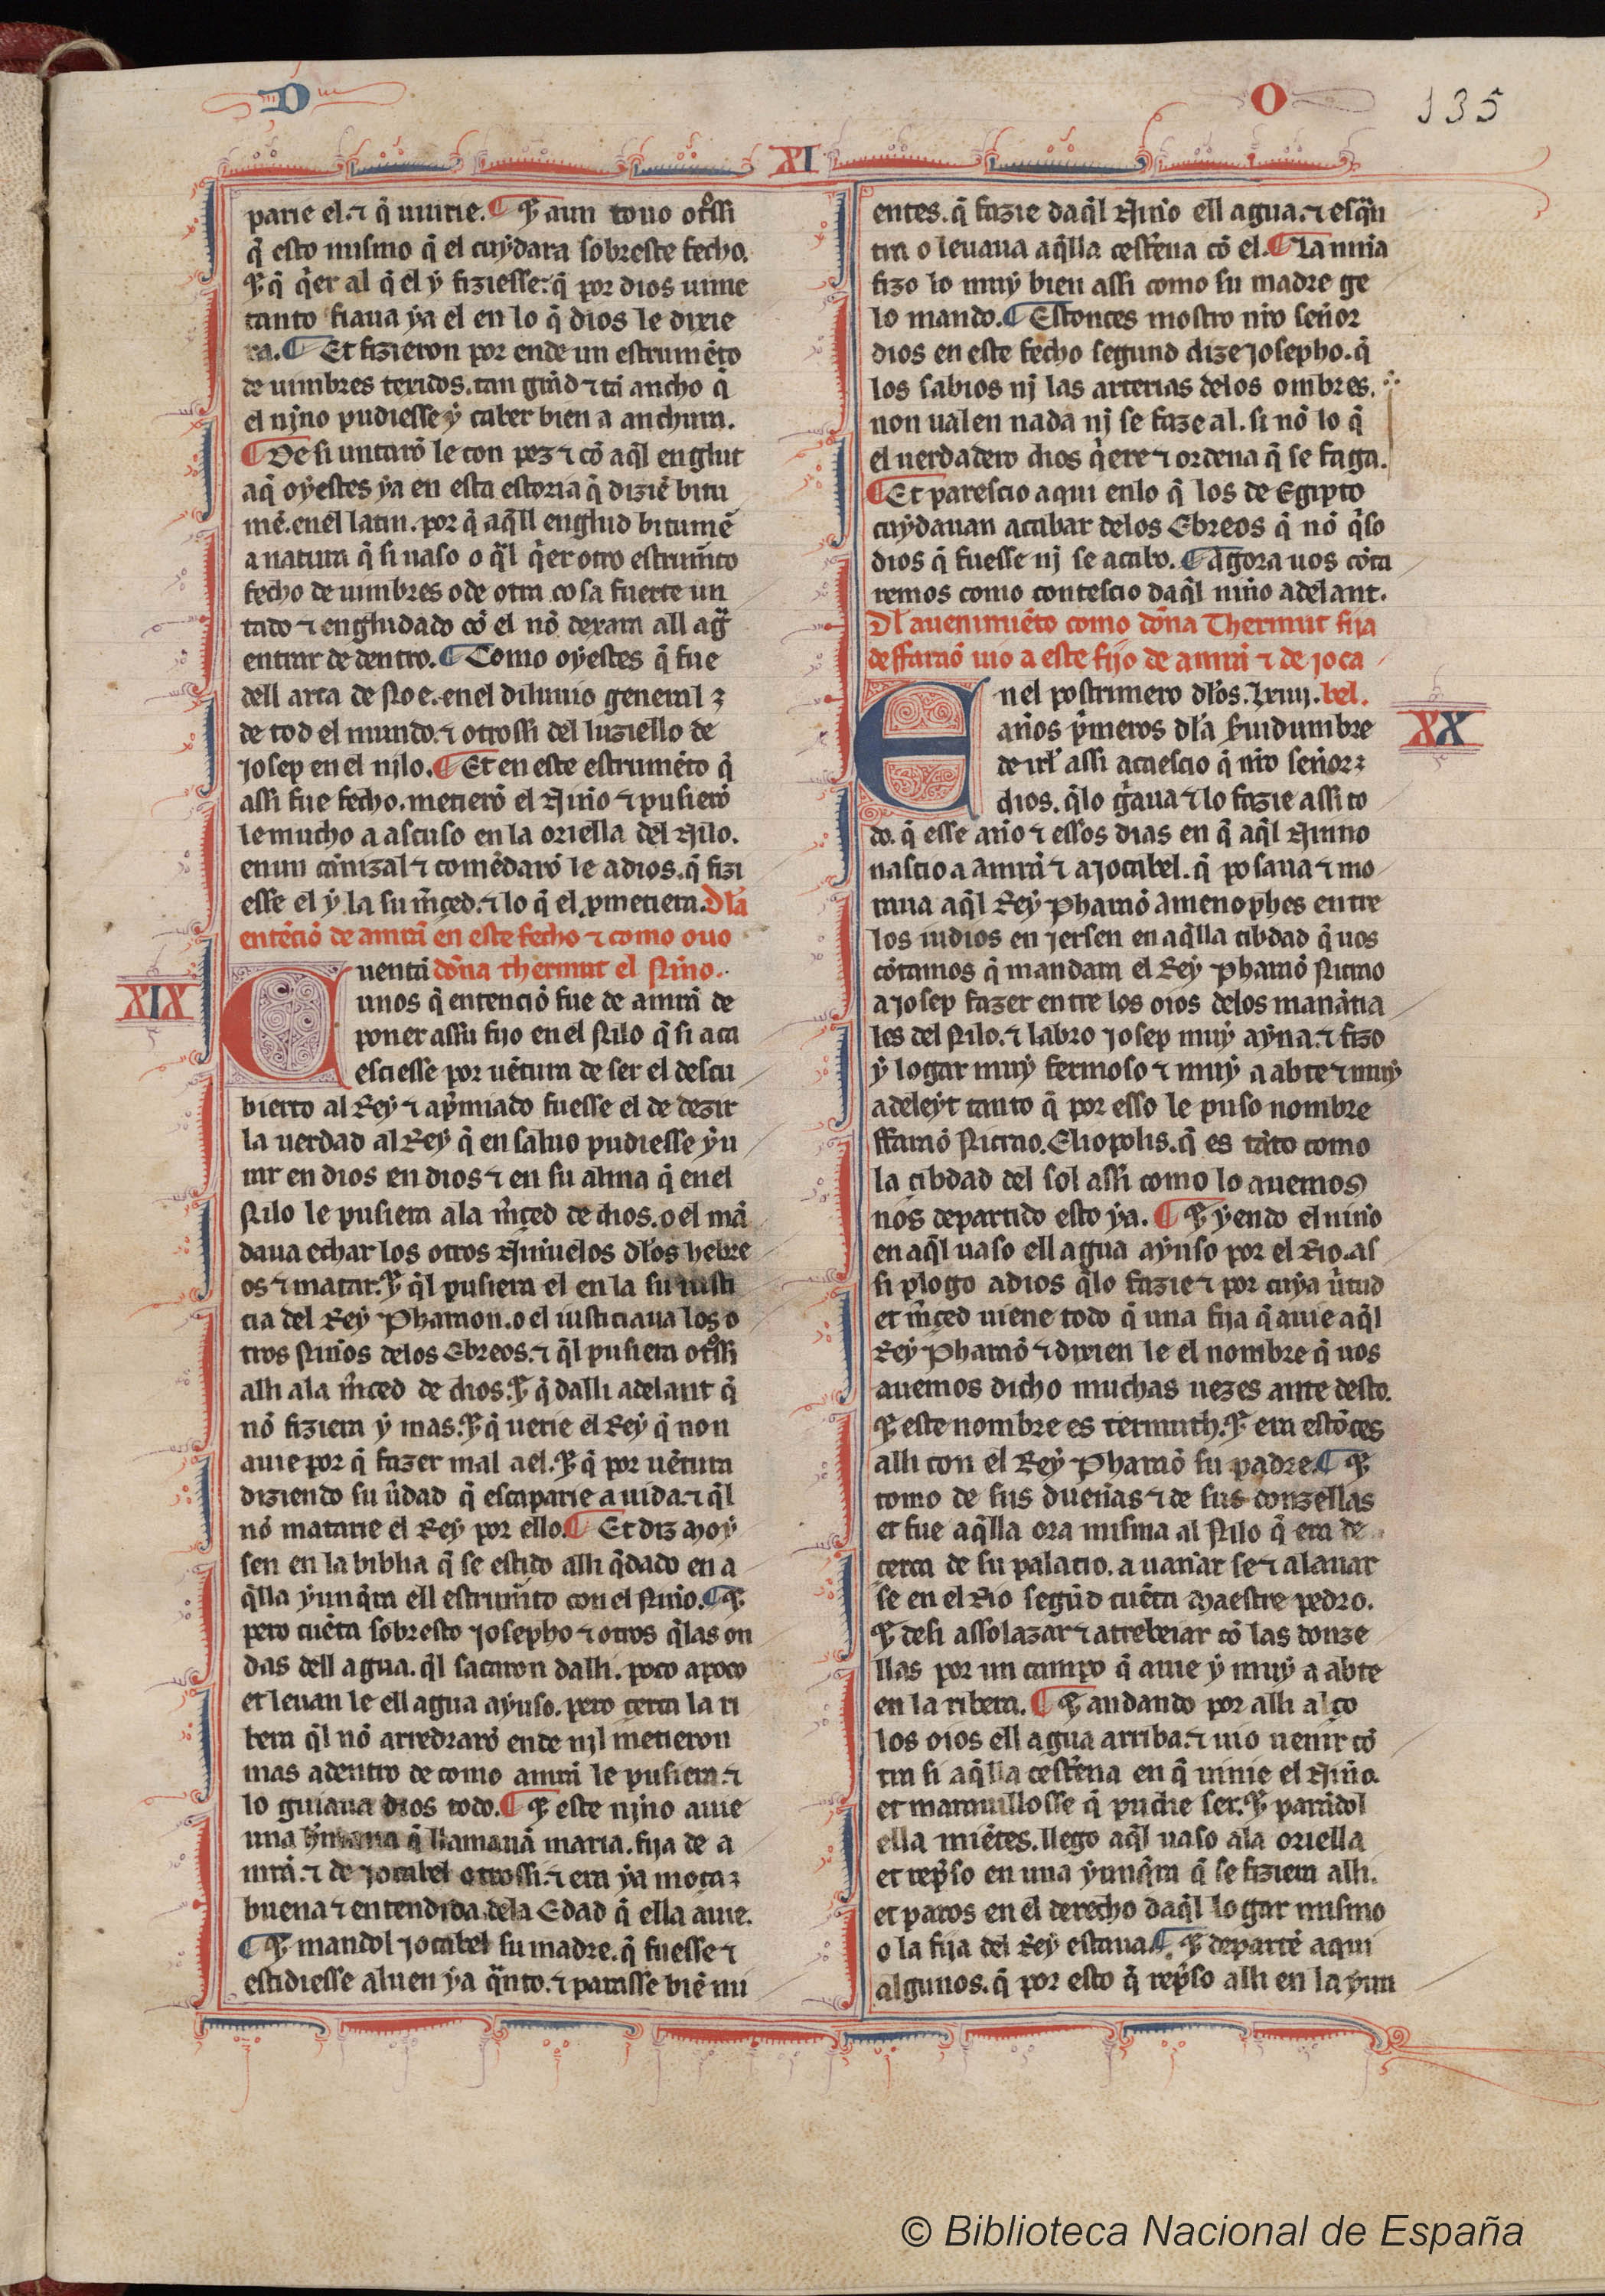 D
O
135
XI
parie el. ⁊ q̃ uiurie. ¶ Et aun touo otͦssi
q̃ esto mismo q̃ el cuydara sobreste fecho.
Et q̃ q̃er al q̃ el y fiziesse: q̃ por dios uinie
tanto fiaua ya el en lo q̃ dios le dixie
ra. ¶ Et fizieron por ende un estrumẽto
de uimbres texidos. tan grãd ⁊ tã ancho q̃
el njno pudiesse y caber bien a anchura.
¶ De si untarõ le con pez ⁊ cõ aq̃l englut
aq̃ oyestes ya en esta estoria q̃ diziẽ bitu
mẽ. en el latin. por q̃ aq̃ll englud bitumẽ
a natura q̃ si uaso o q̃l q̃er otro estrumẽto
fecho de uimbres o de otra cosa fuerte un
tado ⁊ engludado cõ el nõ dexara all agͣ
entrar de dentro. ¶ Como oyestes q̃ fue
dell arca de Noe. en el diluuio general ⁊
de tod el mundo. ⁊ otrossi del luziello de
josep en el nilo. ¶ Et en este estrumẽto q̃
assi fue fecho. metierõ el Nino ⁊ pusierõ
le mucho a ascuso en la oriella del Nilo.
en un cãnizal ⁊ comẽdarõ le a dios. q̃ fizi
esse el y la su m̃ced. ⁊ lo q̃ el ꝓmetiera. Dl̃a
entẽciõ de amrã en este fecho ⁊ como ouo
uentã dõna thermut el Niño.
XIX
Cunos q̃ entenciõ fue de amrã de
poner assu fijo en el Nilo q̃ si aca
esciesse por uẽtura de ser el descu
bierto al Rey ⁊ ap̃miado fuesse el de dezir
la uerdad al Rey q̃ en saluo pudiesse yu
rar en dios en dios ⁊ en su alma q̃ en el
Nilo le pusiera a la m̃ced de dios. o el mã
daua echar los otros Niñuelos dl̃os hebre
os ⁊ matar. Et q̃l pusiera el en la su iusti
cia del Rey Pharaon. o el iusticiaua los o
tros Niños delos Ebreos. ⁊ q̃l pusiera otͦssi
alli ala m̃ced de dios. Et q̃ dalli adelant q̃
nõ fiziera y mas. Et q̃ uerie el Rey q̃ non
auie por q̃ fazer mal a el. Et q̃ por uẽtura
diziendo su ũdad q̃ escaparie a uida. ⁊ q̃l
nõ matarie el Rey por ello. ¶ Et diz Moy
sen en la biblia q̃ se estido alli q̃dado en a
q̃lla yunq̃ra ell estrum̃to con el Nino. ¶ Et
pero cuẽta sobresto josepho ⁊ otros q̃ las on
das dell agua. q̃l sacaron dalli. poco a poco
et leuan le ell agua ayuso. pero cerca la ri
bera q̃l nõ arredrarõ ende nil metieron
mas adentro de como amrã le pusiera. ⁊
lo guiaua dios todo. ¶ Et este njno auie
una hͬmana q̃ llamauã maria. fija de a
mrã. ⁊ de jocabel otrossi. ⁊ era ya moça ⁊
buena ⁊ entendida dela Edad q̃ ella auie.
¶ Et mandol jocabel su madre. q̃ fuesse ⁊
estidiesse aluen ya q̃nto. ⁊ parasse biẽ mi
entes. q̃ fazie daq̃l Nino ell agua. ⁊ esq̃n
tra o leuaua aq̃lla cestiella cõ el. ¶ La ninia
fizo lo muy bien assi como su madre ge
lo mando. ¶ Estonces mostro nr̃o señor
dios en este fecho segund dize josepho. q̃
los sabios nj las arterias delos ombres.
non ualen nada nj se faze al. si nõ lo q̃
el uerdadero dios q̃ere ⁊ ordena q̃ se faga.
¶ Et parescio aqui en lo q̃ los de Egipto
cuydauan acabar delos Ebreos q̃ nõ q̃so
dios q̃ fuesse nj se acabo. ¶ Agora uos cõta
remos como contescio daq̃l nino adelant.
Dl̃ auenimiẽto como dõna Thermut fija
de ffaraõ uio a este fijo de amrã ⁊ de joca
bel.
XX
Enel postrimero dl̃os. Lxiiij.
años p̃meros dl̃a seruidumbre
de isrl̃ assi acaescio q̃ nr̃o señor ⁊
dios. q̃ lo guiaua ⁊ lo fazie assi to
do. q̃ esse año ⁊ essos dias en q̃ aq̃l Ninno
nascio a amrã ⁊ a jocabel. q̃ posaua ⁊ mo
raua aq̃l Rey Pharaõ amenophes entre
los iudios en jersen en aq̃lla cibdad q̃ uos
cõtamos q̃ mandara el Rey Pharaõ Nicrao
a josep fazer entre los oios delos manãtia
les del Nilo. ⁊ labro josep muy ayna. ⁊ fizo
y logar muy fermoso ⁊ muy a abte ⁊ muy
a deleyt tanto q̃ por esso le puso nombre
ffaraõ Nicrao. Eliopolis. q̃ es tãto como
la cibdad del sol assi como lo auemos
nos departido esto ya. ¶ Et yendo el nino
en aq̃l uaso ell agua ayuso por el Rio. as
si plogo a dios q̃ lo fazie ⁊ por cuya ũtud
et m̃ced uiene todo q̃ una fija q̃ auie aq̃l
Rey Pharaõ ⁊ dizien le el nombre q̃ uos
auemos dicho muchas uezes ante desto.
Et este nombre es termuth. Et era estõces
alli con el Rey Pharaõ su padre. ¶ Et
tomo de sus dueñas ⁊ de sus donzellas
et fue aq̃lla ora misma al Nilo q̃ era de
cerca de su palacio. a uañar se ⁊ a lauar
se en el Rio segũd cuẽta Maestre pedro.
Et desi assolazar ⁊ a trebeiar cõ las donze
llas por un campo q̃ auie y muy a abte
en la ribera. ¶ Et andando por alli alço
los oios ell agua arriba. ⁊ uio uenir cõ
tra si aq̃lla cestiella en q̃ uinie el Niño.
et marauillosse q̃ pudie ser. Et parãdol
ella miẽtes. llego aq̃l uaso ala oriella
et rep̃so en una yunq̃ra q̃ se fiziera alli.
et paros en el derecho daq̃l logar mismo
o la fija del Rey estaua. ¶ Et departẽ aqui
algunos. q̃ por esto q̃ rep̃so alli en la yun
© Biblioteca Nacional de España